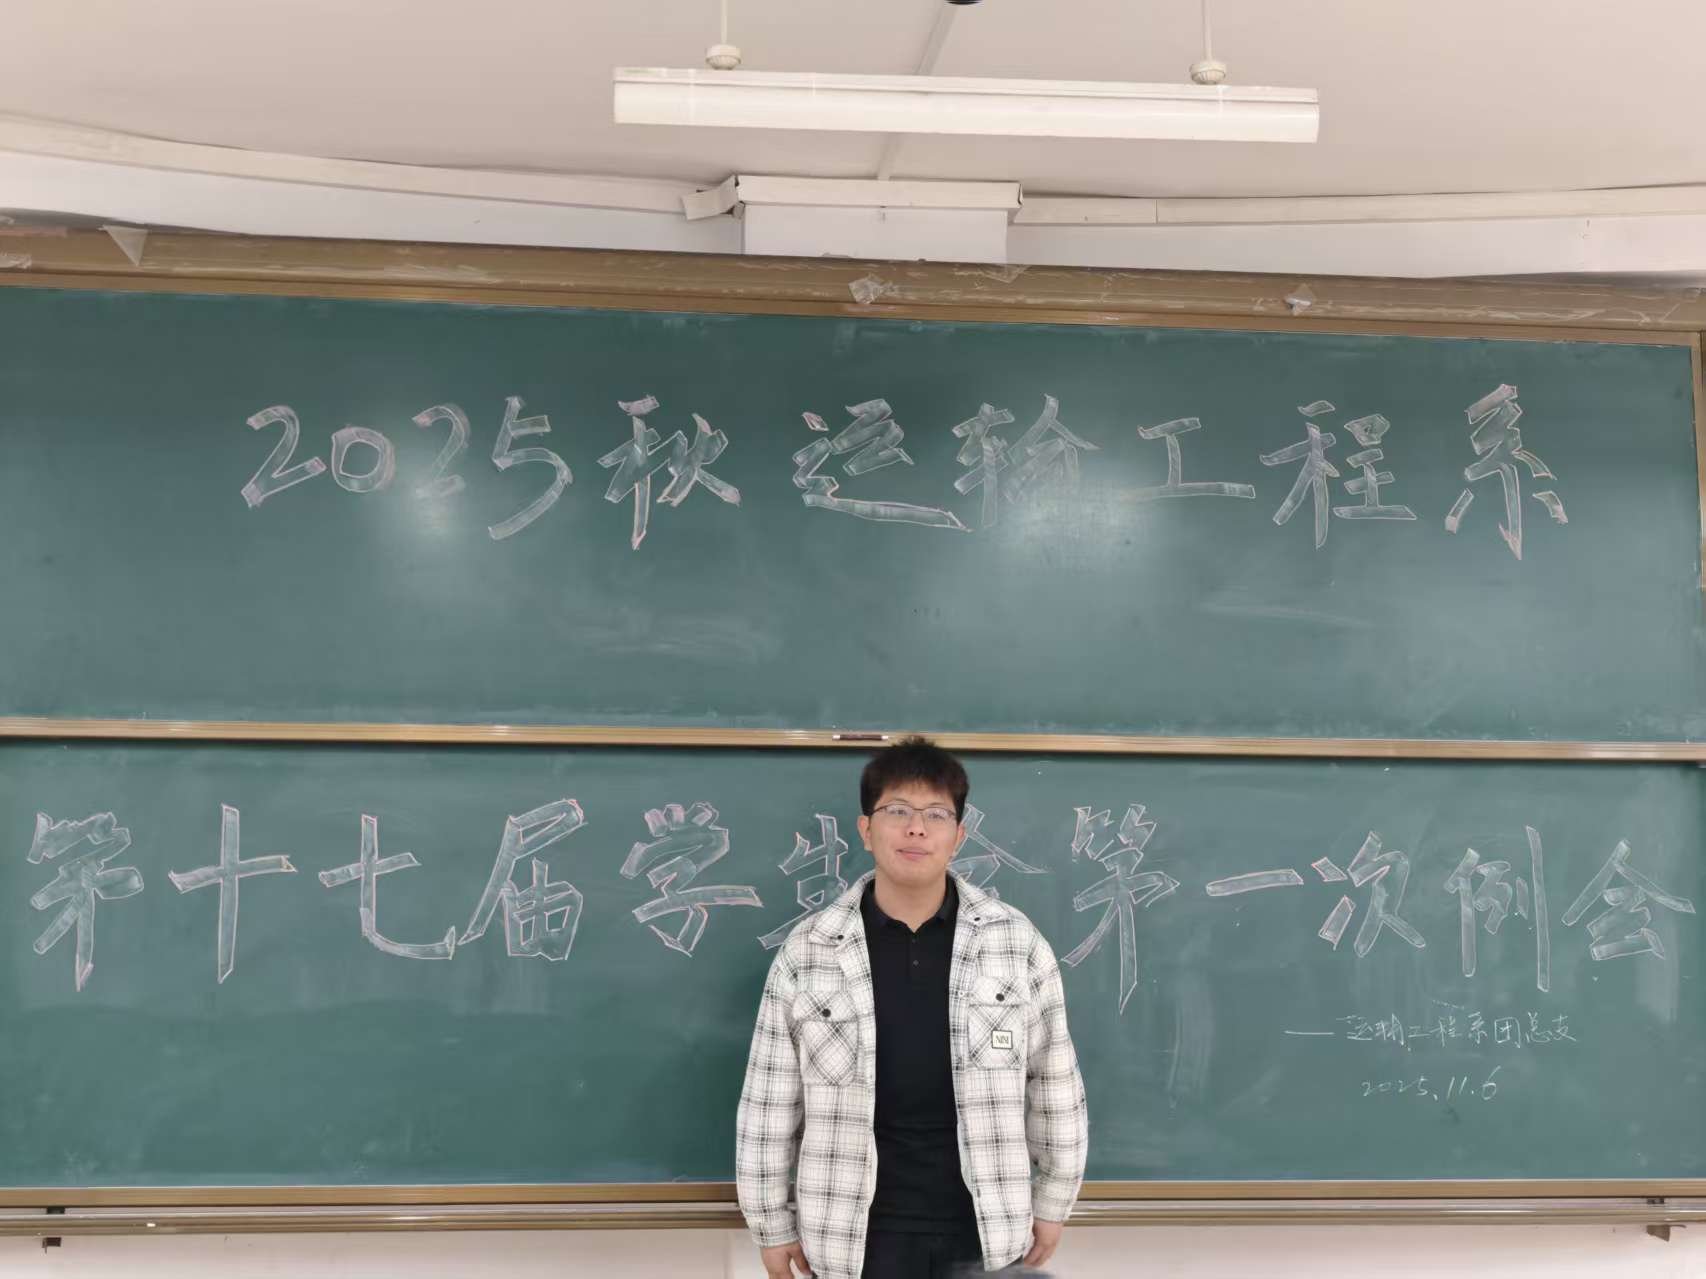 2025秋运输工程系
第十七届学生会第一次例会
——运输工程系团总支
2025.11.6